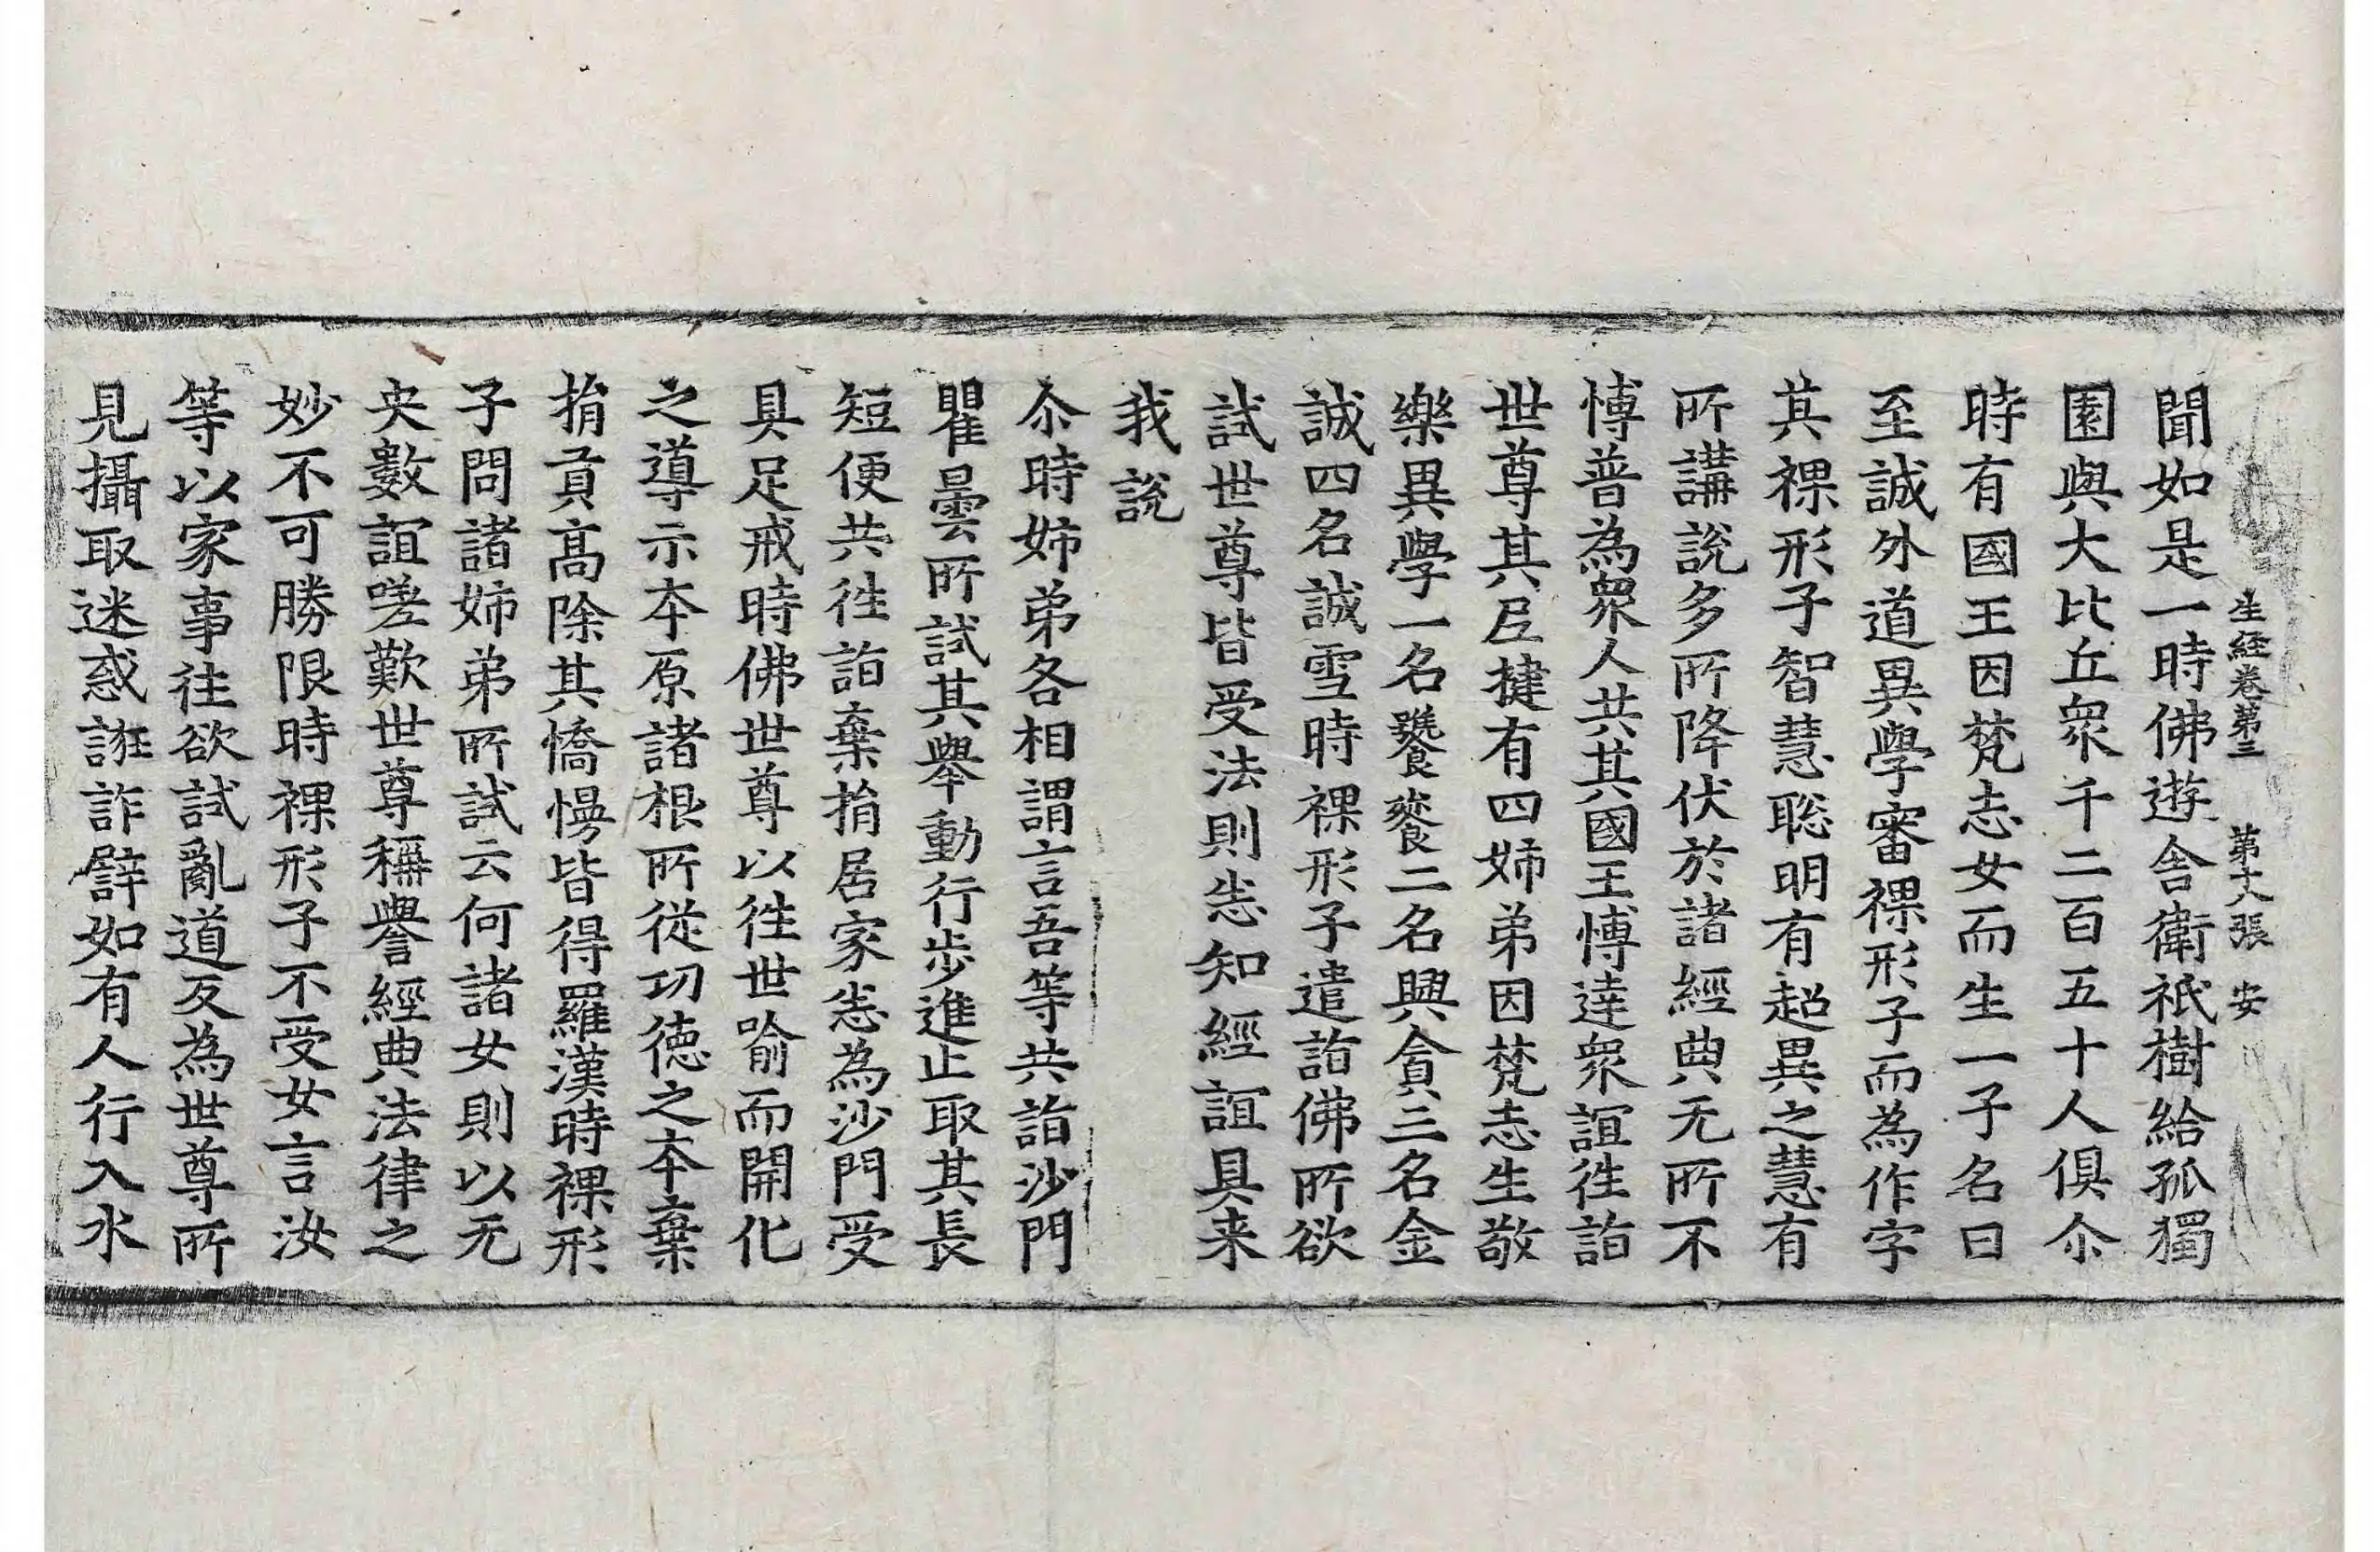 生經卷第三 第十八張 安
聞如是一時佛遊舎衛祇樹給孤獨
園與大比丘衆千二百五十人俱尒
時有國王因梵志女而生一子名曰
至誠外道異學審裸形子而為作字
其裸形子智慧聡明有超異之慧有
所講說多所降伏於諸經典无所不
愽普為衆人共其國王愽達衆誼往詣
世尊其尼揵有四姉弟因梵志生敬
樂異學一名饕餮二名興貪三名金
誠四名誠雪時裸形子遣詣佛所欲
試世尊皆受法則悉知經誼具来
我說
尒時姉弟各相謂言吾等共詣沙門
瞿曇所試其舉動行步進止取其長
短便共往詣棄捐居家悉為沙門受
具足戒時佛世尊以往世喻而開化
之導示本原諸根所從功徳之本棄
捐貢髙除其憍慢皆得羅漢時裸形
子問諸姉弟所試云何諸女則以无
央數誼嗟歎世尊稱譽經典法律之
妙不可勝限時裸形子不受女言汝
等以家事往欲試亂道反為世尊所
見攝取迷惑誑詐譬如有人行入水